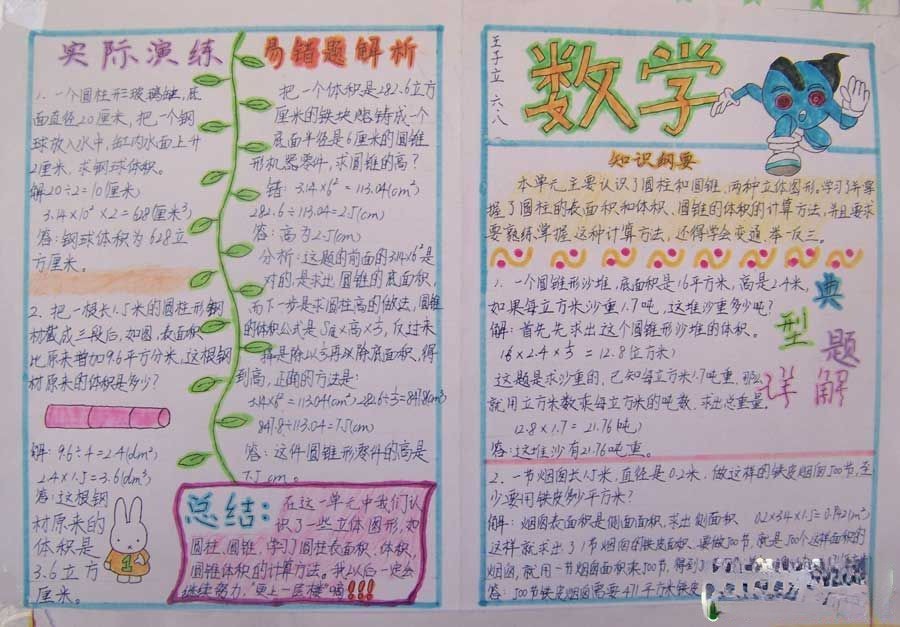 实际演练
1、一个圆柱形玻璃缸,底
面直径20厘米,把一个钢
球放入水中,缸内水面上升
2厘米,求钢球体积。
解20÷2=10(厘米)
3.14×10²×2=628(厘米³)
答:钢球体积为628立
方厘米。
2、把一根长1.5米的圆柱形钢
材截成三段后,如图,表面积
比原来增加9.6平方分米,这根钢
材原来的体积是多少?
解:9.6÷4=2.4(dm²)
2.4×1.5=3.6(dm³)
答:这根钢
材原来的
体积是
3.6立方
厘米。
1
易错题解析
把一个体积是282.6立方
厘米的铁块熔铸成一个
底面半径是6厘米的圆锥
形机器零件,求圆锥的高?
错:3.14×6²=113.04(cm²)
282.6÷113.04=2.5(cm)
答:高为2.5(cm)
分析:这题的前面的3.14×6²是
对的,是求出圆锥的底面积,
而下一步是求圆柱高的做法,圆锥
的体积公式是
到高,正确的方法是:
3.14×6²=113.04(cm²) 282.6÷⅓=847.8(cm³)
847.8÷113.04=7.5(cm)
答:这件圆锥形零件的高是
7.5cm。
总结:
在这一单元中我们认
识了一些立体图形,如
圆柱,圆锥,学习了圆柱表面积、体积,
圆锥体积的计算方法。我以后一定会
继续努力,“更上一层楼”嘀!!!
王子立 六.八
数学
知识纲要
本单元主要认识了圆柱和圆锥,两种立体图形,学习了并掌
握了圆柱的表面积和体积、圆锥的体积的计算方法,并且要求
要熟练掌握这种计算方法,还得学会变通,举一反三。
典型题详解
1、一个圆锥形沙堆,底面积是16平方米,高是2.4米,
如果每立方米沙重1.7吨,这堆沙重多少吨?
解:首先,先求出这个圆锥形沙堆的体积。
16×2.4×⅓=12.8(立方米)
这题是求沙重的,已知每立方米1.7吨重,那么
就用立方米数乘每立方米的吨数,求出总重量。
12.8×1.7=21.76(吨)
答:这堆沙有21.76吨重。
2、一节烟囱长1.5米,直径是0.2米,做这样的铁皮烟囱500节,至
少要用铁皮多少平方米?
解:烟囱表面积是侧面面积,求出侧面积 0.2×3.14×1.5=0.942(m²)
这样就求出了1节烟囱的铁皮面积,要做500节,就是500个这样面积的
烟囱,就用一节烟囱面积乘500,得到
答:500节铁皮烟囱需要471平方米铁皮